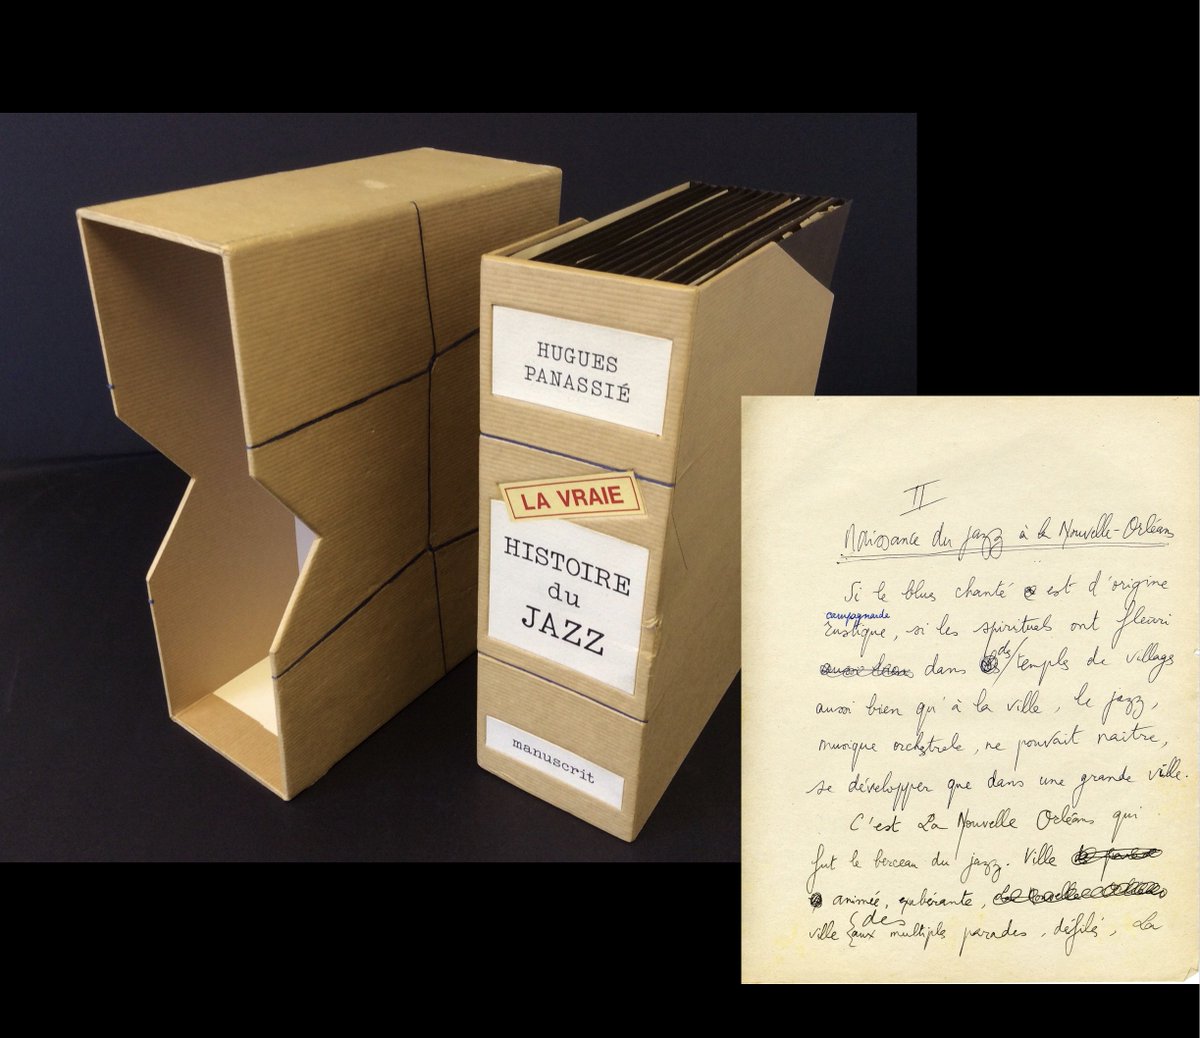 HUGUES
PANASSIÉ
LA VRAIE
HISTOIRE
du
JAZZ
manuscrit
II
Naissance du jazz à la Nouvelle-Orléans
Si le blues chanté est d'origine
campagnarde
rustique, si les spirituals ont fleuri
dans ds/temples de villages
aussi bien qu'à la ville, le jazz,
musique orchestrale, ne pouvait naître,
se développer que dans une grande ville.
C'est La Nouvelle Orléans qui
fut le berceau du jazz. Ville
animée, exubérante,
des
ville aux multiples parades, défilés, la